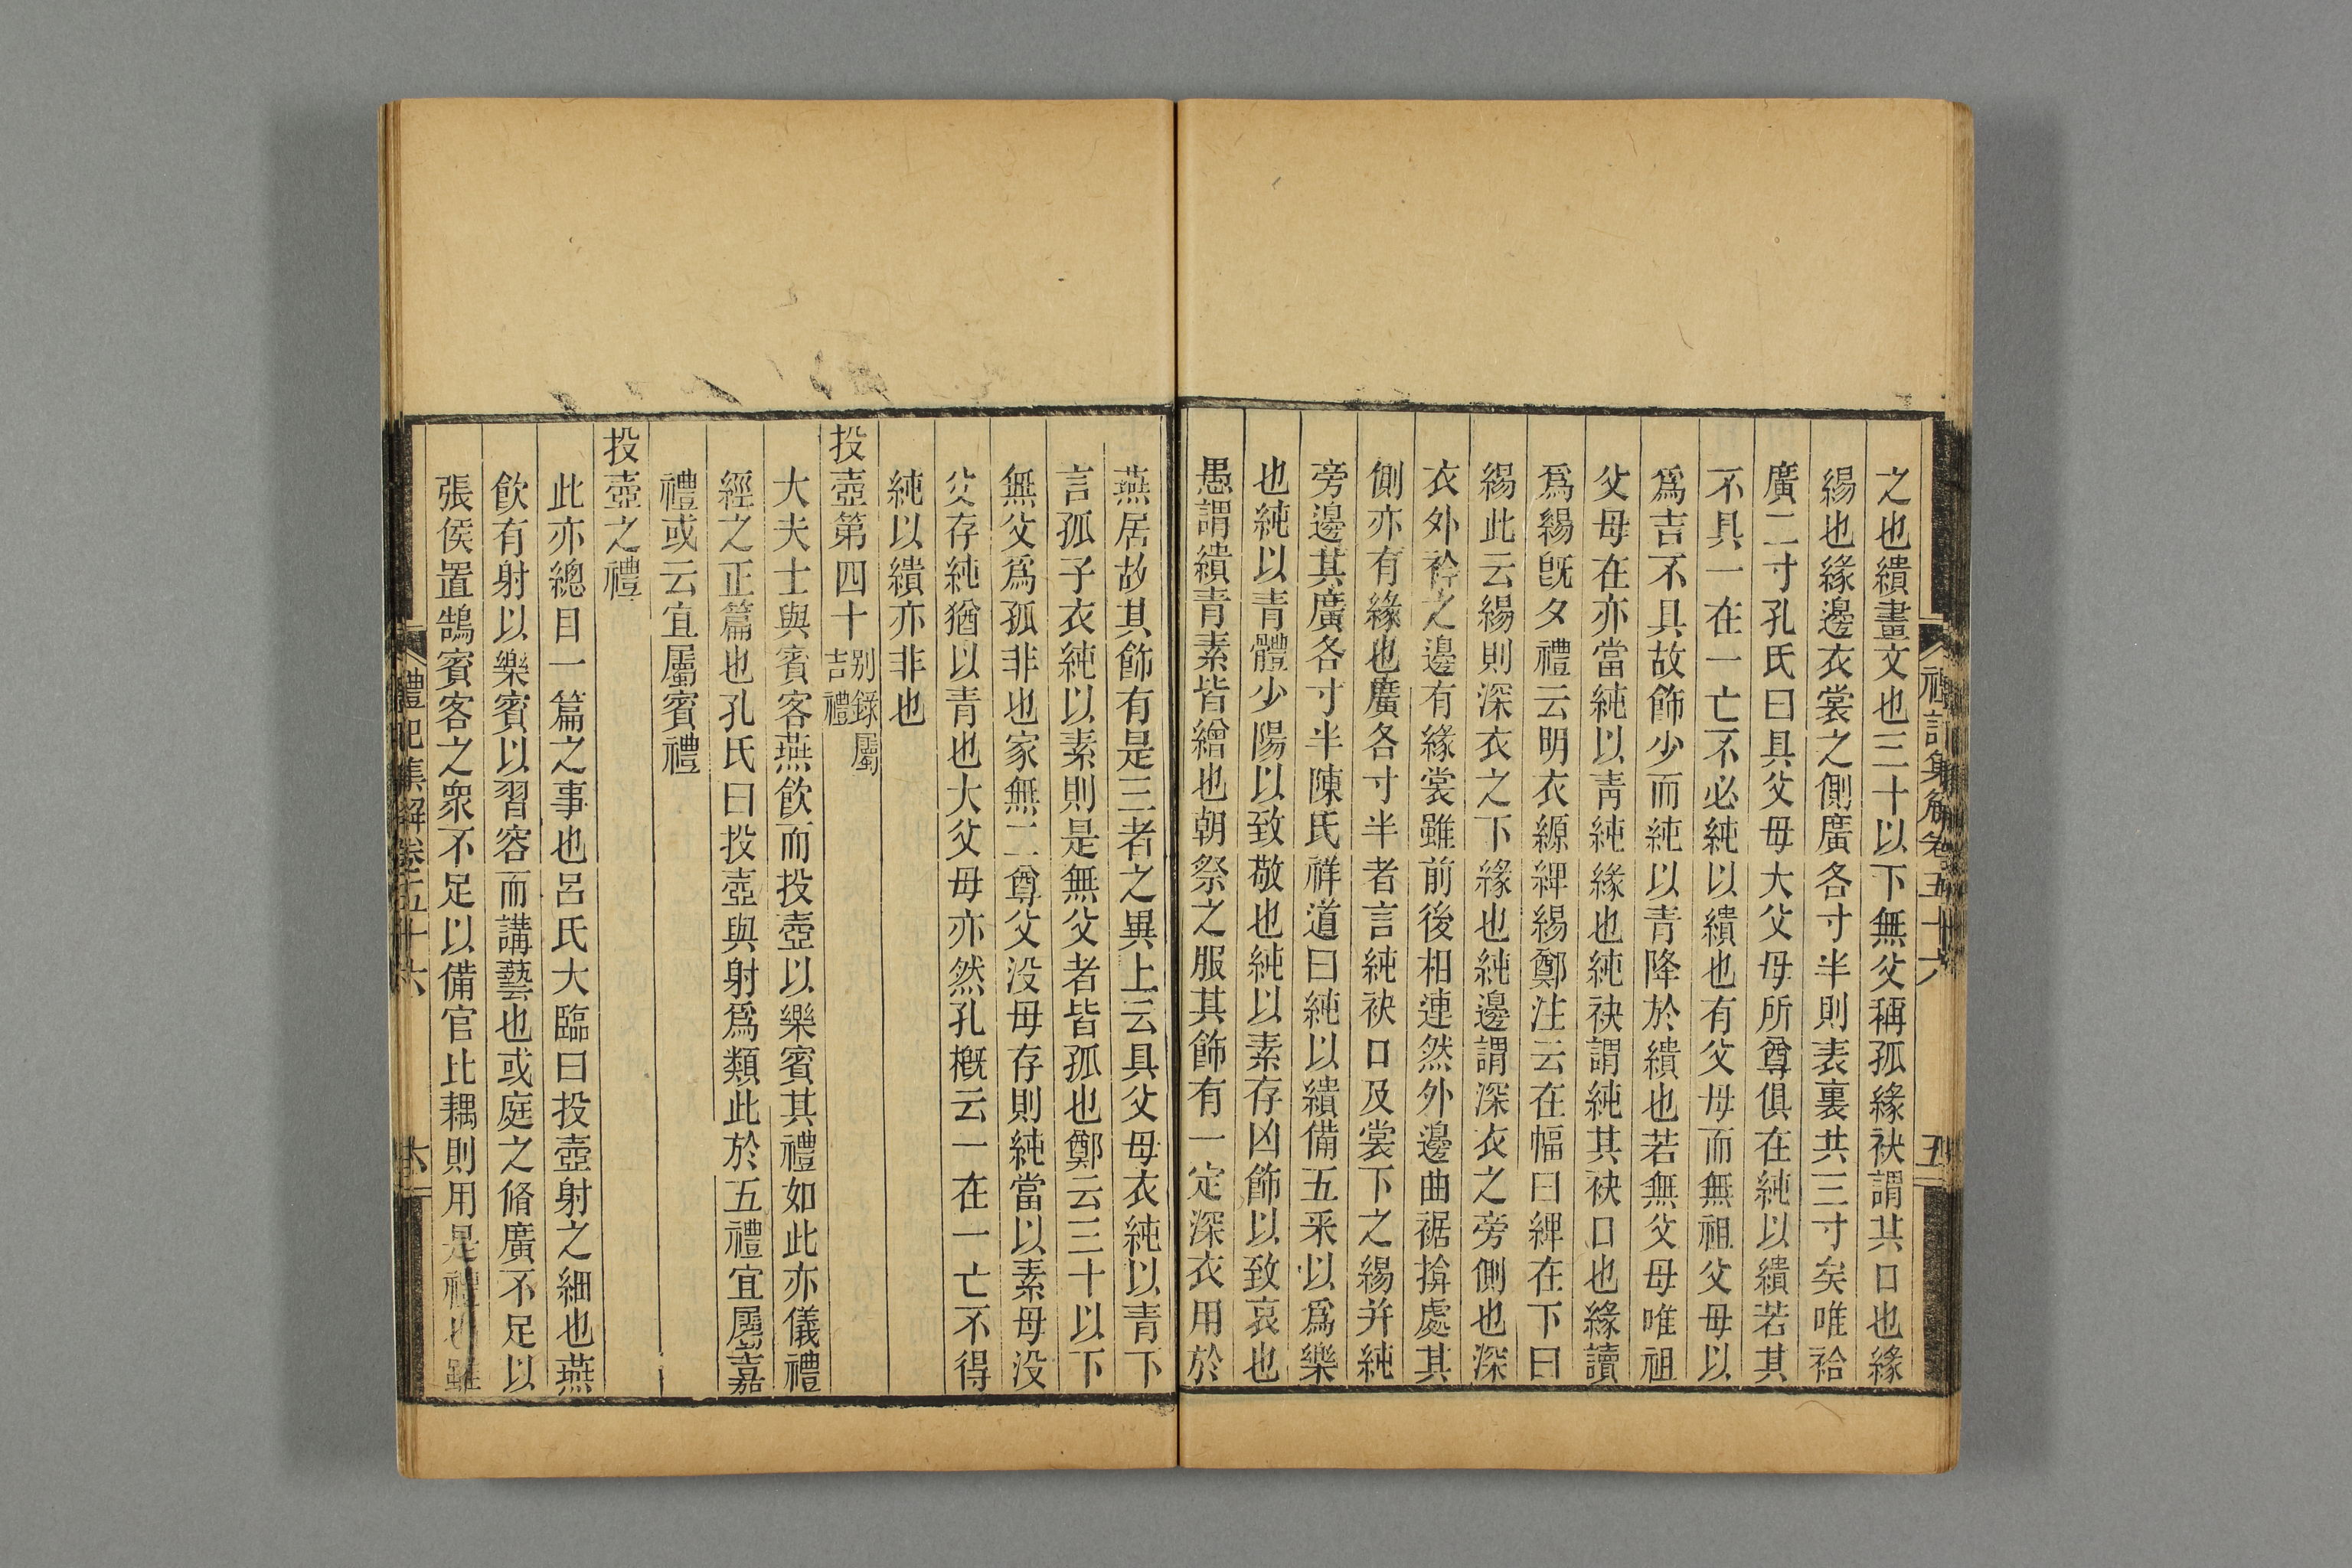 禮記集解卷五十六
五
之也繢畫文也三十以下無父稱孤緣袂謂其口也緣
緆也緣邊衣裳之側廣各寸半則表裏共三寸矣唯袷
廣二寸孔氏曰具父母大父母所尊俱在純以繢若其
不具一在一亡不必純以繢也有父母而無祖父母以
爲吉不具故飾少而純以青降於繢也若無父母唯祖
父母在亦當純以青純緣也純袂謂純其袂口也緣讀
爲緆旣夕禮云明衣縓綼緆鄭注云在幅曰綼在下曰
緆此云緆則深衣之下緣也純邊謂深衣之旁側也深
衣外衿之邊有緣裳雖前後相連然外邊曲裾揜處其
側亦有緣也廣各寸半者言純袂口及裳下之緆并純
旁邊其廣各寸半陳氏祥道曰純以繢備五采以爲樂
也純以青體少陽以致敬也純以素存凶飾以致哀也
愚謂繢青素皆繒也朝祭之服其飾有一定深衣用於
燕居故其飾有是三者之異上云具父母衣純以青下
言孤子衣純以素則是無父者皆孤也鄭云三十以下
無父爲孤非也家無二尊父没母存則純當以素母没
父存純猶以青也大父母亦然孔槪云一在一亡不得
純以繢亦非也
投壺第四十別錄屬吉禮
大夫士與賓客燕飲而投壺以樂賓其禮如此亦儀禮
經之正篇也孔氏曰投壺與射爲類此於五禮宜屬嘉
禮或云宜屬賓禮
投壺之禮
此亦總目一篇之事也呂氏大臨曰投壺射之細也燕
飲有射以樂賓以習容而講藝也或庭之脩廣不足以
張侯置鵠賓客之衆不足以備官比耦則用是禮也雖
禮記集解卷五十六
六